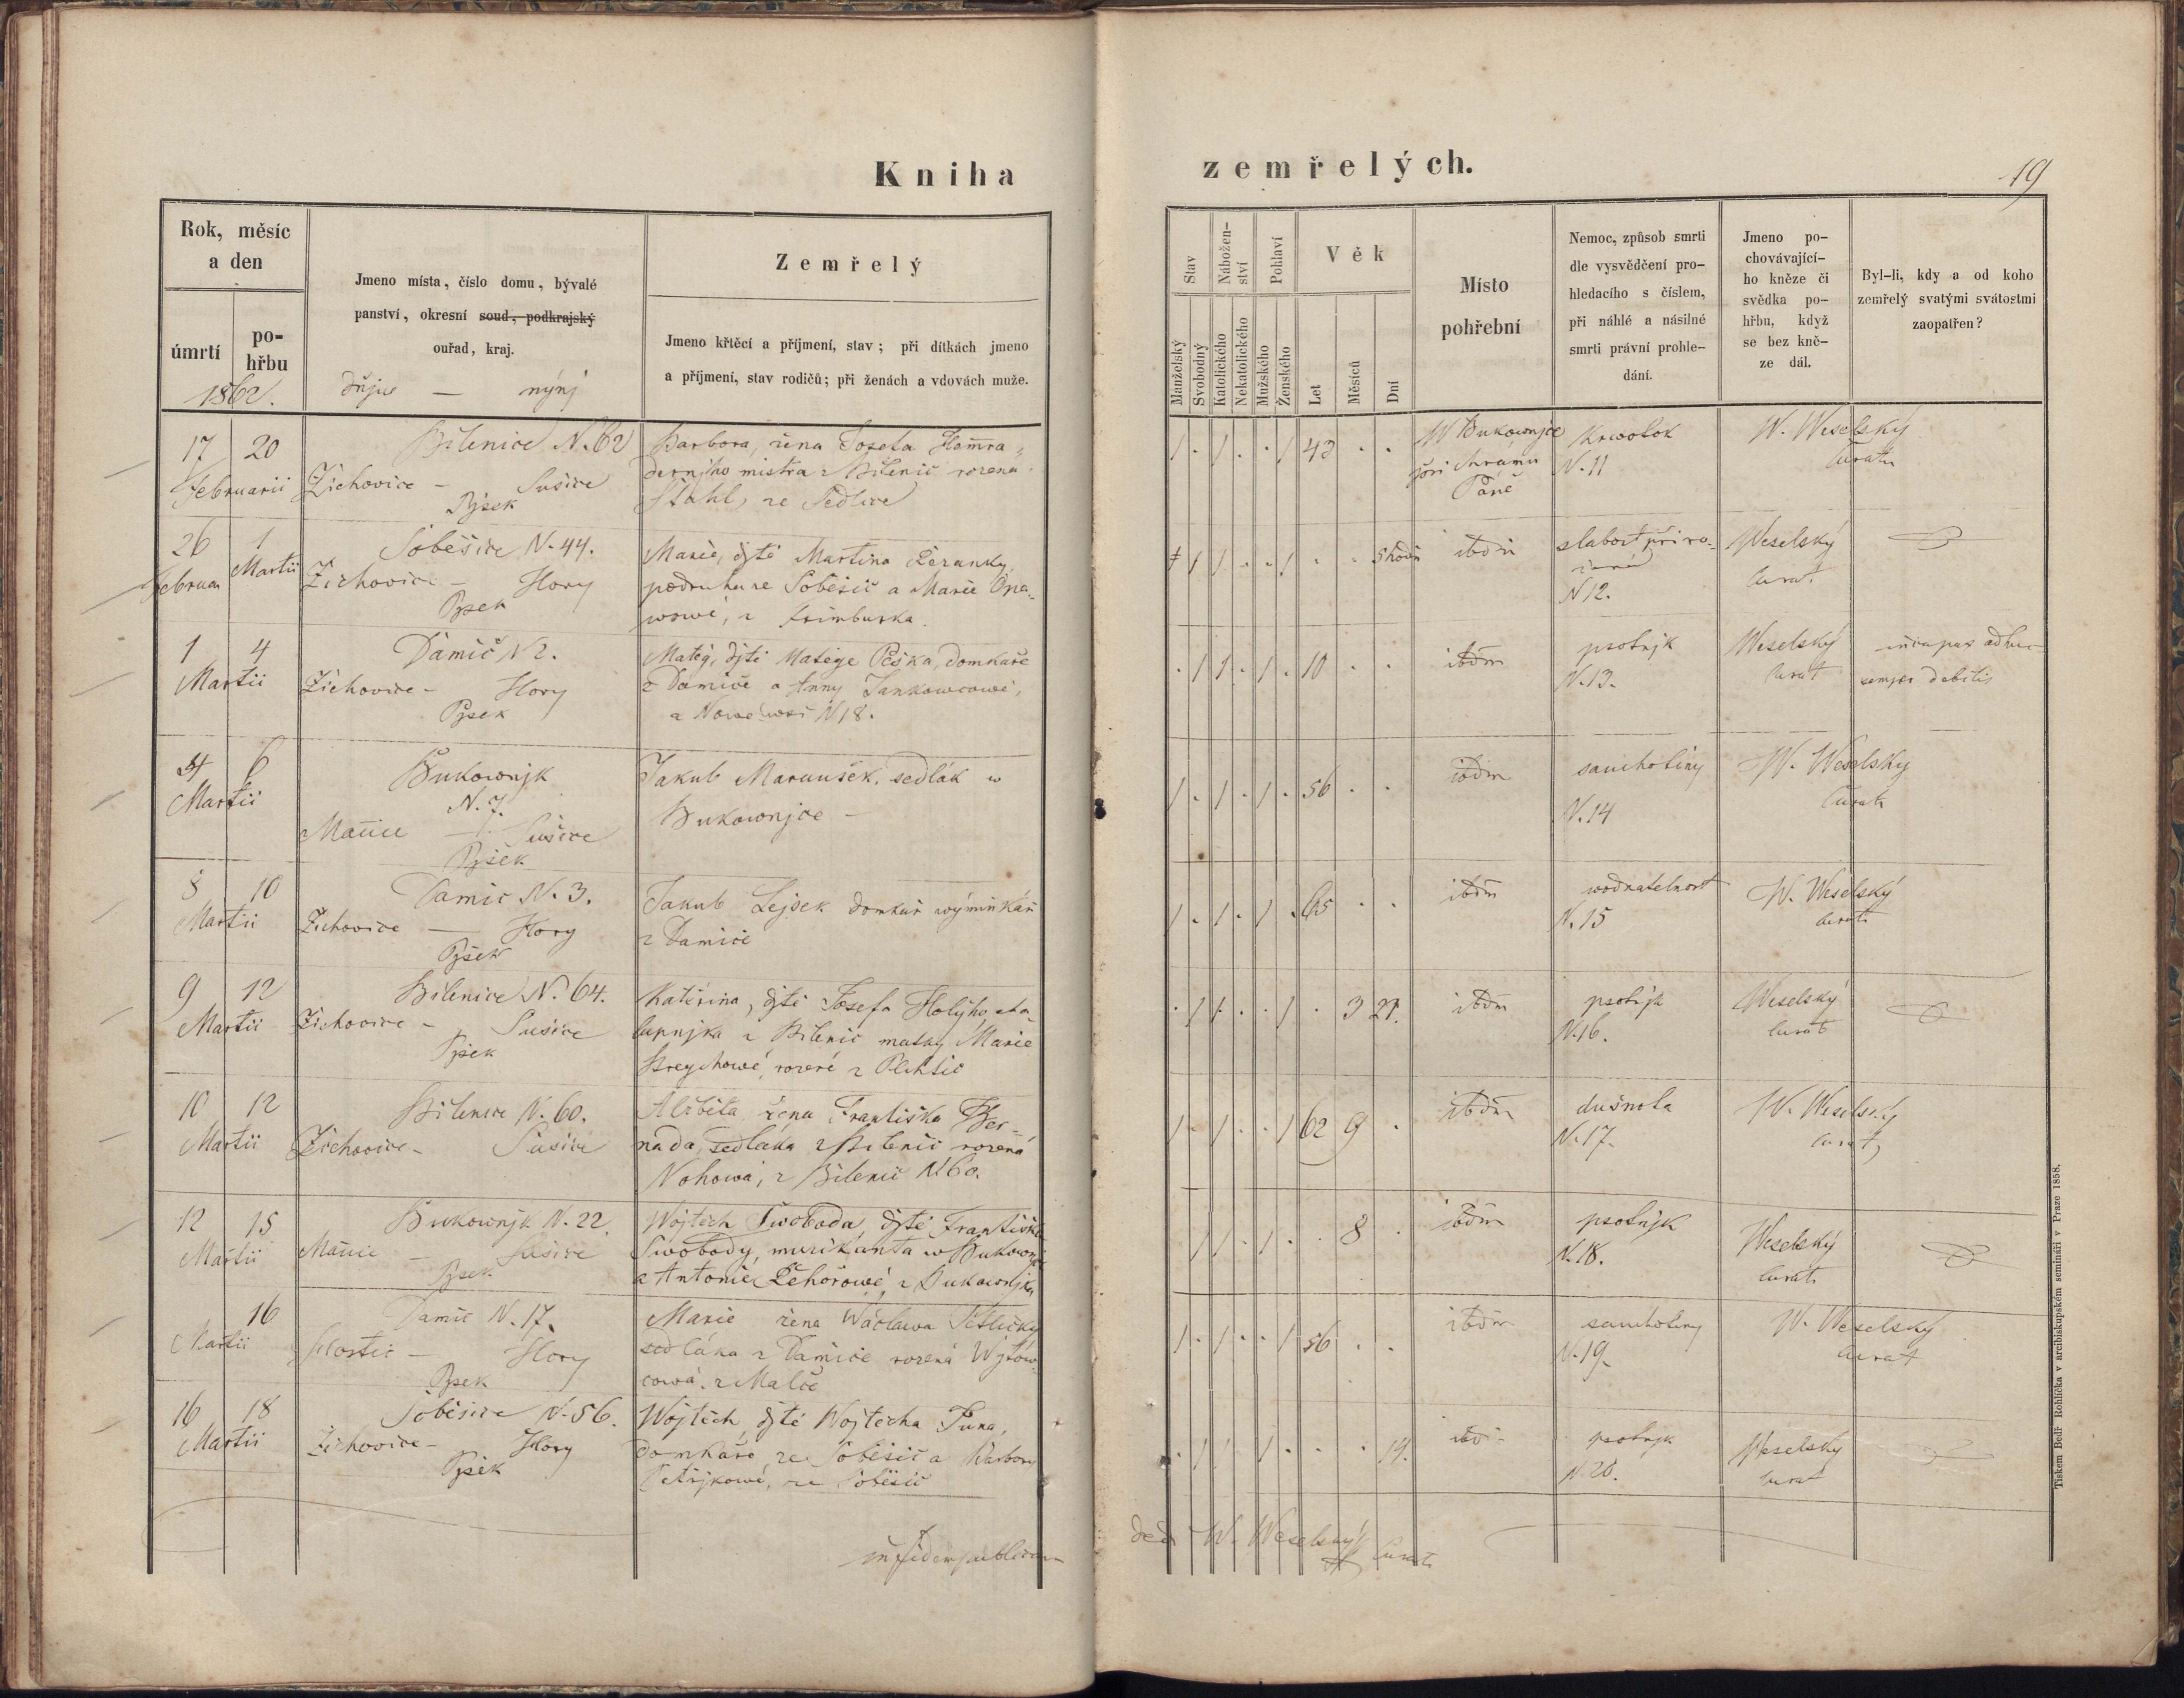 Kniha zemřelých.
19
Rok, měsíc
a den
úmrtí
po-
hřbu
1862.
Jmeno místa, číslo domu, bývalé
panství, okresní soud, podkrajský
ouřad, kraj.
dřjve — nýnj
Zemřelý
Jmeno křtěcí a příjmení, stav; při dítkách jmeno
a příjmení, stav rodičů; při ženách a vdovách muže.
Stav
Nábožen-
ství
Pohlaví
Věk
Manželský
Svobodný
Katolického
Nekatolického
Mužského
Ženského
Let
Měsíců
Dní
Místo
pohřební
Nemoc, způsob smrti
dle vysvědčení pro-
hledacího s číslem,
při náhlé a násilné
smrti právní prohle-
dání.
Jmeno po-
chovávající-
ho kněze či
svědka po-
hřbu, když
se bez kně-
ze dál.
Byl-li, kdy a od koho
zemřelý svatými svátostmi
zaopatřen?
17 20
Februarii
Bilenice N. 62
Žichovice — Sušice
Pjsek
Barbora, žena Josefa
mistra z Bilenic rozena
Stahl, ze Sedlice
1 . 1 . . 1 43 . .
W Bukownjce
při chrámu
Páně
Krwotok
N. 11
W. Weselský
Curat
26 1
Februar Martii
Soběšice N. 44.
Žichovice — Hory
Pjsek
Marie, djtě Martina
podruha ze Soběšic a Marie
1 1 . . 1 . . 5 hodin
ibdm
slabost přiro-
zená
N 12.
Weselský
Curat.
1 4
Martii
Damič N 2.
Žichovice — Hory
Pjsek
Matěg, djtě Matěge Peška, domkaře
z Damiče a Anny Jankowcowé,
z Nowé wsi N 18.
. 1 1 . 1 . 10 . .
ibdm
psotnjk
N. 13.
Weselský
Curat
incapax adhuc
semper debilis
4 6
Martii
Bukownjk
N. 7.
— Sušice
Pjsek
Jakub Maroušek, sedlák w
Bukownjce —
1 . 1 . 1 . 56 . .
ibdm
souchotiny
N. 14
W. Weselský
Curat
8 10
Martii
Damič N. 3.
Žichovice — Hory
Pjsek
Jakub Lejsek domkař wýminkář
z Damiče
1 . 1 . 1 . 65 . .
ibdm
wodnatelnost
N. 15
W. Weselský
Curat
9 12
Martii
Bilenice N. 64.
Žichovice — Sušice
Pjsek
Kateřina, djtě Josefa Holýho, cha-
lupnjka z Bilenic matky Marie
Kreychowé, rozené z
. 1 1 . . 1 . 3 21.
ibdm
psotnjk
N. 16.
Weselský
Curat
10 12
Martii
Bilenice N. 60.
Žichovice — Sušice
Alžběta žena Františka Ber-
nada, sedláka z Bilenic rozená
Nohowá, z Bilenic N. 60.
1 . 1 . . 1 62 9 .
ibdm
dušnota
N. 17.
W. Weselský
Curat
12 15
Martii
Bukownjk N. 22.
— Sušice
Pjsek
Wojtěch Swoboda, djtě Františka
Swobody, muzikanta w Bukownjce
a Antonie Řehořowé, z Bukownjka
. 1 1 . 1 . . 8 .
ibdm
psotnjk
N. 18.
Weselský
Curat.
16
Martii
Damič N. 17.
— Hory
Pjsek
Marie žena Wáclawa
sedláka z Damiče rozená
z Malče
1 . 1 . . 1 56 . .
ibdm
souchotiny
N. 19.
W. Weselský
Curat
16 18
Martii
Soběšice N. 56.
Žichovice — Hory
Pjsek
Wojtěch, djtě Wojtěcha
domkaře, ze Soběšic a Barbory
ze Soběšic
. 1 1 1 . . . 14.
psotnjk
N. 20.
Weselský
Curat
in fidem publicam dedi W. Weselský Curat
Tiskem Bedř. Rohlíčka v arcibiskupském semináři v Praze 1858.